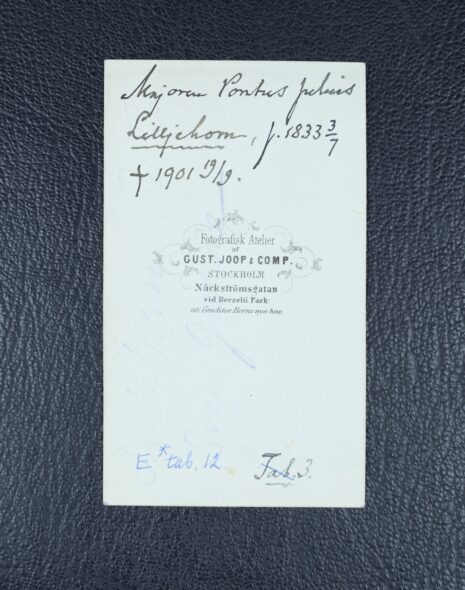 Majoren Pontus Julius
Lilliehorn, f. 1833 3/7
† 1901 19/9.
Fotografisk Atelier
af
GUST. JOOP & COMP.
STOCKHOLM
Näckströmsgatan
vid Berzelii Park
uti Conditor Bernsnya hus
E* tab. 12
Tab. 3.